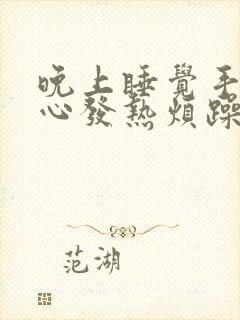 晚上睡覺手
心發熱煩躁
范湖